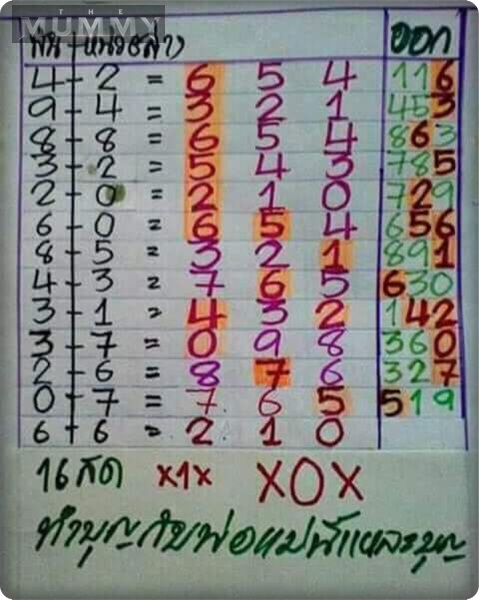 THE
MUMMY
พัน + หน่วยล่าง ออก
4 + 2 = 6 5 4 116
9 + 4 = 3 2 1 453
8 + 8 = 6 5 4 863
3 + 2 = 5 4 3 785
2 + 0 = 2 1 0 729
6 + 0 = 6 5 4 656
8 + 5 = 3 2 1 891
4 + 3 = 7 6 5 630
3 + 1 = 4 3 2 142
3 + 7 = 0 9 8 360
2 + 6 = 8 7 6 327
0 + 7 = 7 6 5 519
6 + 6 = 2 1 0
16 x1x x0x
ทำบุญกับพ่อแม่นี่แหละบุญ